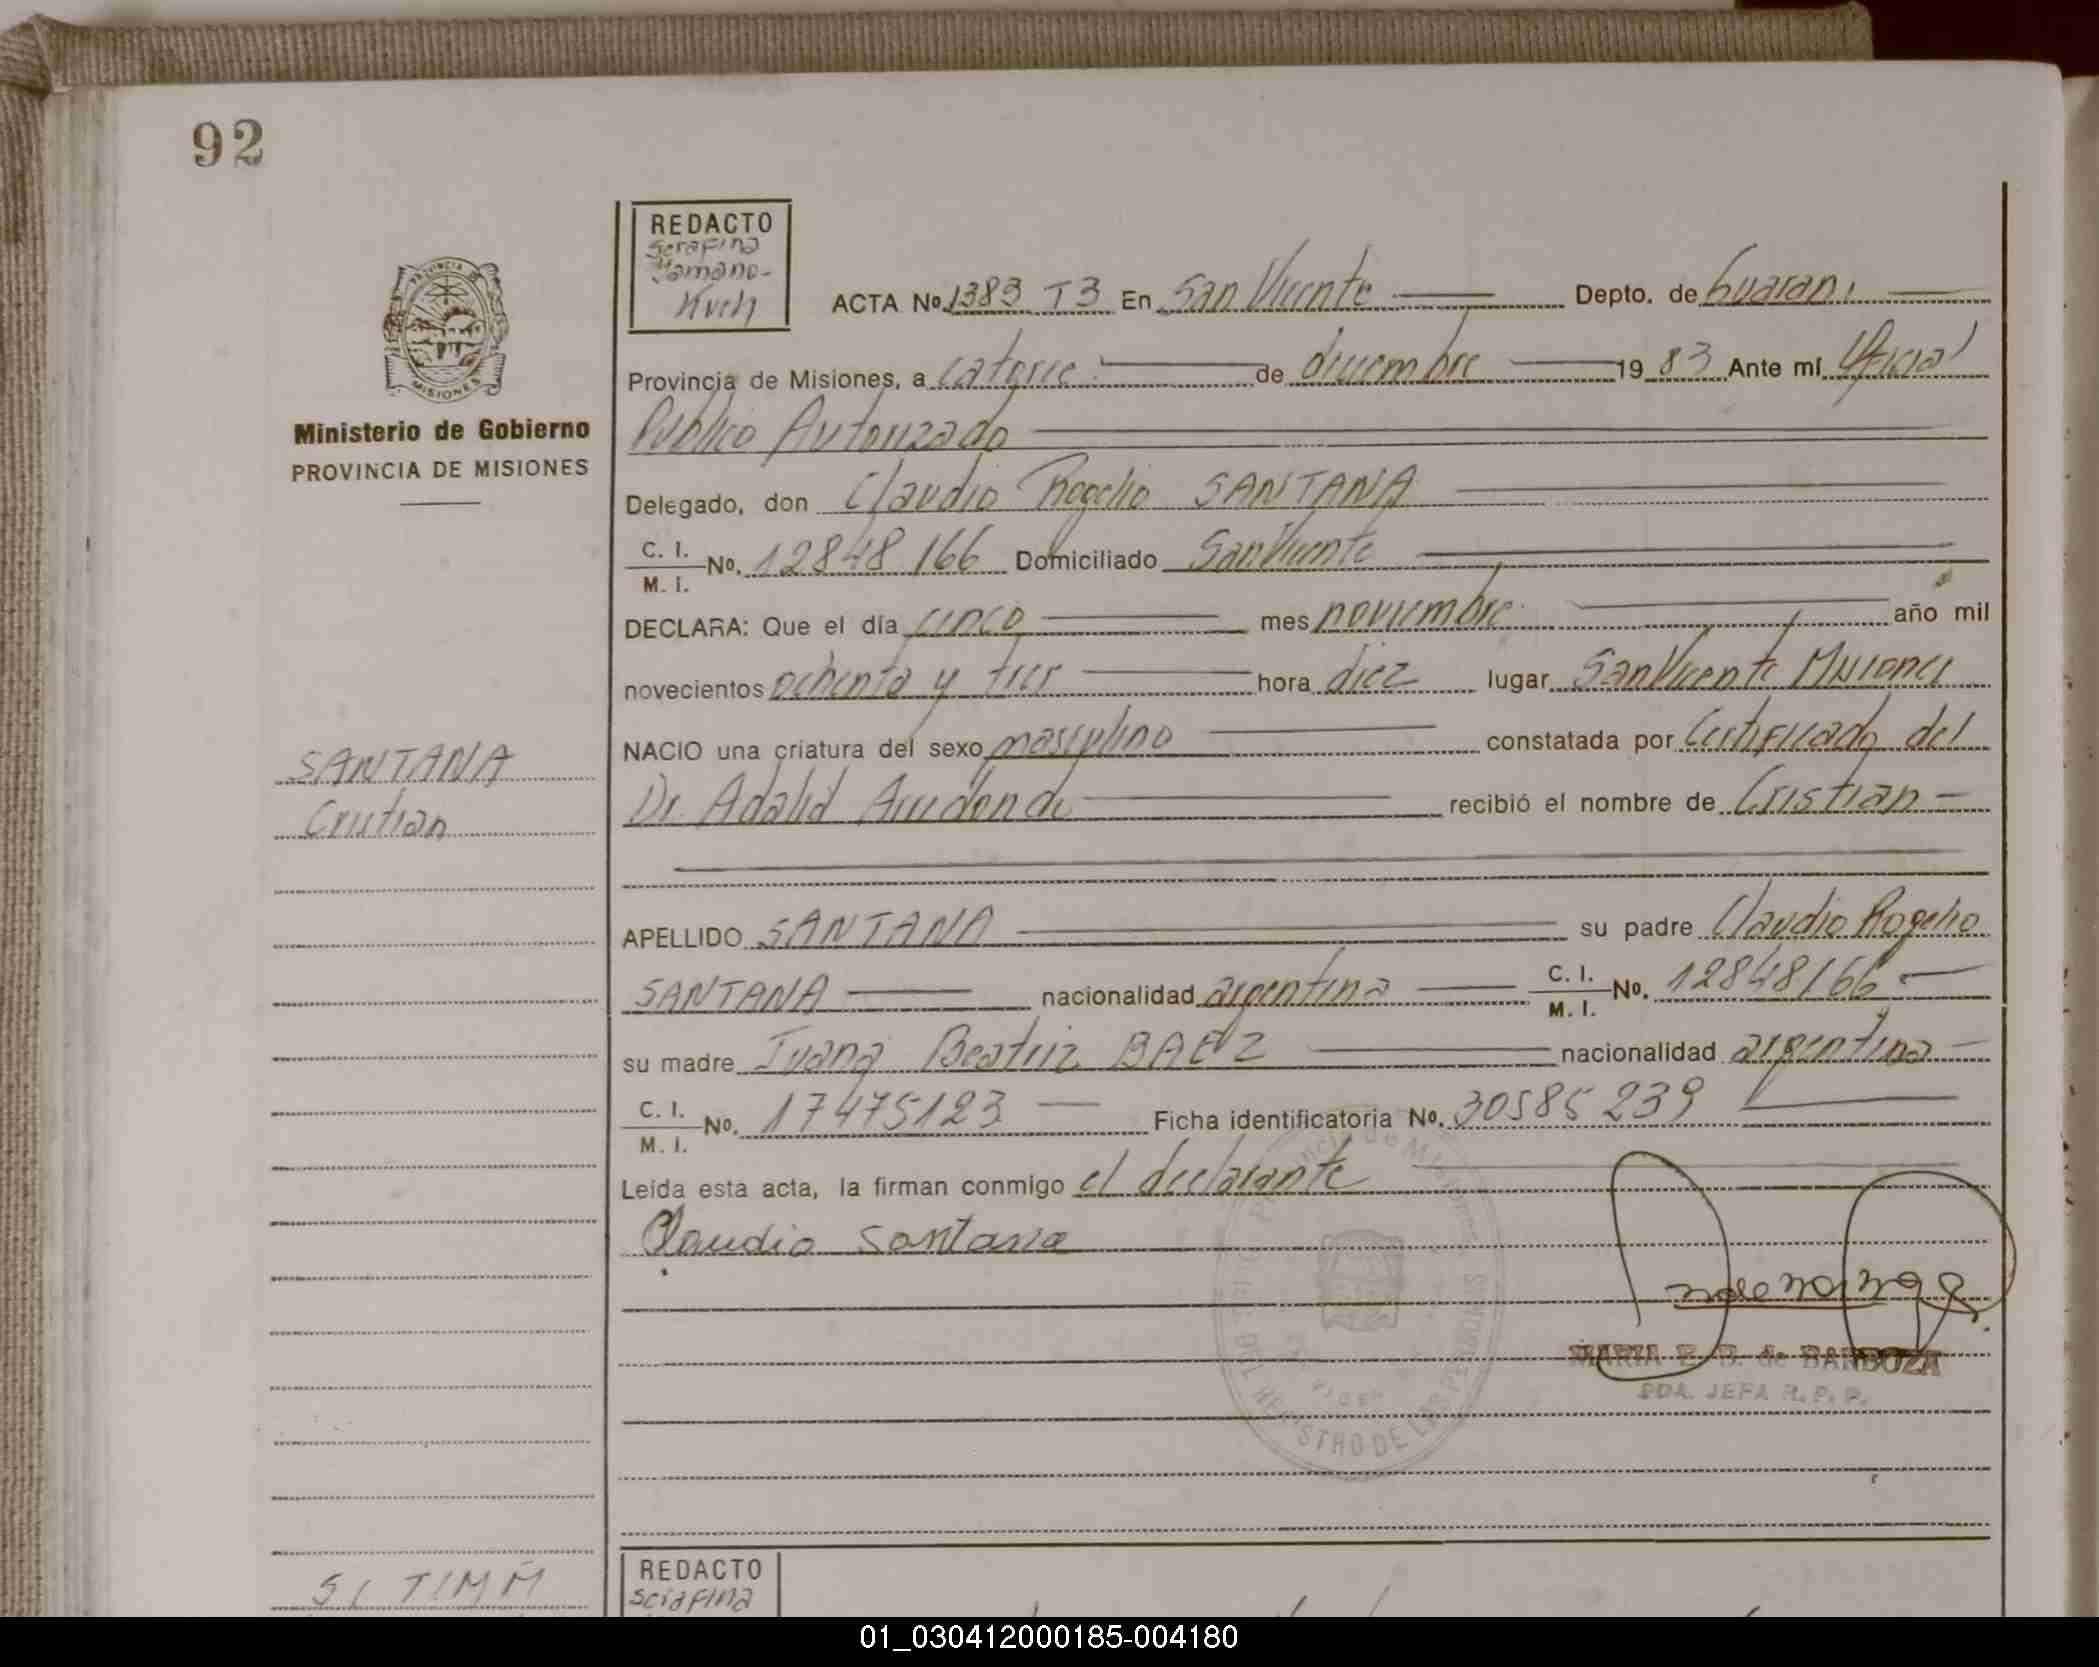 92
REDACTO
Serafina
Kuch
ACTA No. 1383 T3 En San Vicente Depto. de Guarani
Provincia de Misiones, a catorce de diciembre 1983 Ante mí Oficial
Publico Autorizado
Delegado, don Claudio Rogelio SANTANA
C. I.
M. I. No. 12848166 Domiciliado San Vicente
DECLARA: Que el día cinco mes noviembre año mil
novecientos ochenta y tres hora diez lugar San Vicente Misiones
NACIO una criatura del sexo masculino constatada por Certificado del
Dr. Adalid recibió el nombre de Cristian
APELLIDO SANTANA su padre Claudio Rogelio
SANTANA nacionalidad argentina C. I.
M. I. No. 12848166
su madre Juana Beatriz BAEZ nacionalidad argentina
C. I.
M. I. No. 17475123 Ficha identificatoria No. 30585239
Leída esta acta, la firman conmigo el declarante
Claudio Santana
MARIA E. B. de BARBOZA
PROVINCIA DE
MISIONES
Ministerio de Gobierno
PROVINCIA DE MISIONES
SANTANA
Cristian
REDACTO
Serafina
01_030412000185-004180